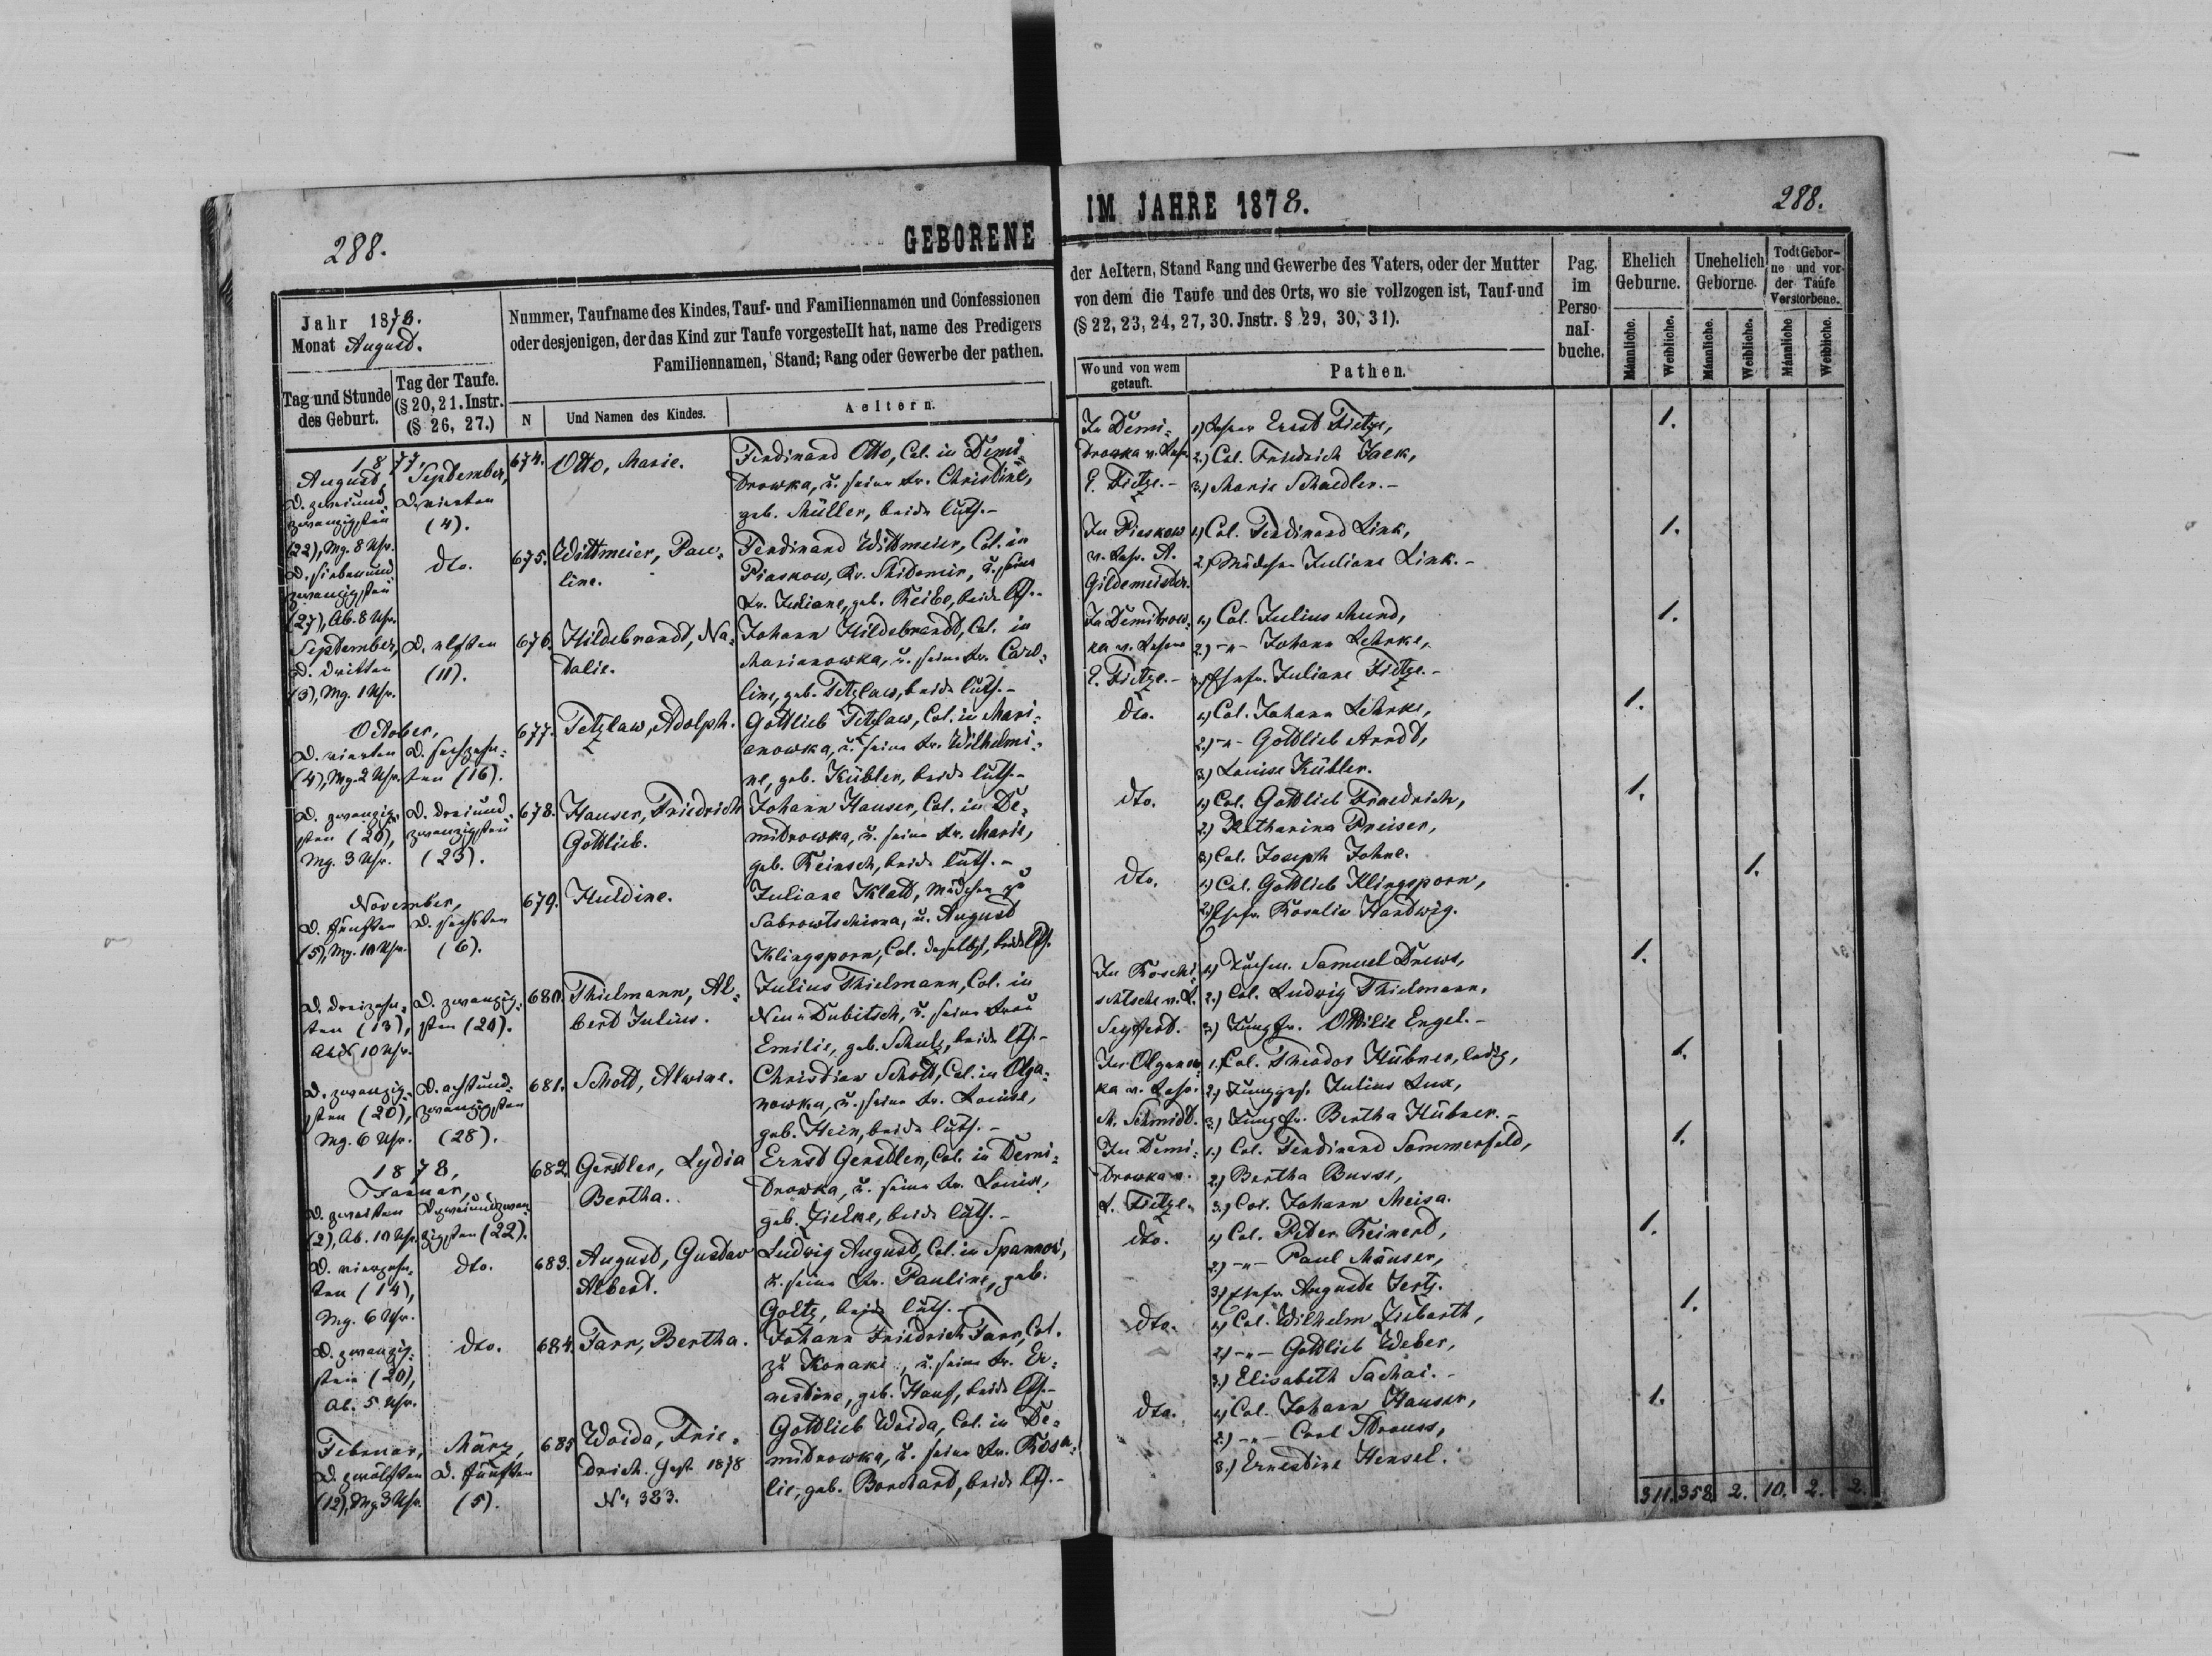 288.
GEBORENE
Jahr 1878.
Monat August.
Nummer, Taufname des Kindes, Tauf- und Familiennamen und Confessionen
oder desjenigen, der das Kind zur Taufe vorgestellt hat, name des Predigers
Familiennamen, Stand; Rang oder Gewerbe der pathen.
Tag und Stunde
des Geburt.
Tag der Taufe.
(§ 20, 21. Instr.
(§ 26, 27.)
N
Und Namen des Kindes.
Aeltern.
1877.
August,
D. zweiund
zwanzigsten
(22), Mg. 8 Uhr.
September,
D. vierten
(4).
674.
Otto, Marie.
Ferdinand Otto, Col. in Demi-
drowka, u. seine Fr. Christine,
geb. Müller, beide luth.-
D. siebenund
zwanzigsten
(27), Ab. 8 Uhr.
dto.
675.
Wittmeier, Pau-
line.
Ferdinand Wittmeier, Col. in
Piaskow, Kr. Shidomir, u. seine
Fr. Juliane, geb. Keibe, beide lth.-
September,
D. dritten
(3), Mg. 1 Uhr.
D. elften
(11).
676.
Hildebrandt, Na-
talie.
Johann Hildebrandt, Col. in
Marianowka, u. seine Fr. Caro-
line, geb. Tetzlaw, beide luth.-
October,
D. vierten
(4), Mg. 2 Uhr.
D. sechzehn-
ten (16).
677.
Tetzlaw, Adolph.
Gottlieb Tetzlaw, Col. in Mari-
anowka, u. seine Fr. Wilhelmi-
ne, geb. Kübler, beide luth.-
D. zwanzig-
sten (20),
Mg. 3 Uhr.
D. dreiund-
zwanzigsten
(23).
678.
Hauser, Friedrich
Gottlieb.
Johann Hauser, Col. in De-
midrowka, u. seine Fr. Marie,
geb. Reinsch, beide luth.-
November,
D. fünften
(5), Mg. 10 Uhr.
D. sechsten
(6).
679.
Huldine.
Juliane Klatt, Mädchen zu
Sabrowtschisna, u. August
Klingsporn, Col. daselbst, beide lth.
D. dreizehn-
ten (13),
Abds 10 Uhr.
D. zwanzig-
sten (20).
680.
Thielmann, Al-
bert Julius.
Julius Thielmann, Col. in
Neu-Dubitsch, u. seine Frau
Emilie, geb. Schulz, beide lth.-
D. zwanzig-
sten (20),
Mg. 6 Uhr.
D. achtund-
zwanzigsten
(28).
681.
Schott, Alwine.
Christian Schott, Col. in Olga-
nowka, u. seine Fr. Louise,
geb. Hein, beide luth.-
1878,
Januar,
D. zweiten
(2), Ab. 10 Uhr.
D. zweiundzwan-
zigsten (22).
682.
Gerstler, Lydia
Bertha.
Ernst Gerstler, Col. in Demi-
drowka, u. seine Fr. Louise,
geb. Zielke, beide luth.-
D. vierzehn-
ten (14),
Mg. 6 Uhr.
dto.
683.
August, Gustav
Albert.
Ludwig August, Col. in Spannow,
u. seine Fr. Pauline, geb.
Goltz, beide luth.-
D. zwanzig-
sten (20),
Ab. 5 Uhr.
dto.
684.
Farr, Bertha.
Johann Friedrich Farr, Col.
zu Konaki, u. seine Fr. Er-
nestine, geb. Hauf, beide lth.-
Februar,
D. zwölften
(12), Mg. 3 Uhr.
März,
D. fünften
(5).
685.
Woida, Frie-
drich. Gest. 1878
No. 383.
Gottlieb Woida, Col. in De-
midrowka, u. seine Fr. Rosa-
lie, geb. Borchard, beide lth.-
IM JAHRE 1878.
288.
der Aeltern, Stand Rang und Gewerbe des Vaters, oder der Mutter
von dem die Taufe und des Orts, wo sie vollzogen ist, Tauf-und
(§ 22, 23, 24, 27, 30. Jnstr. § 29, 30, 31).
Pag.
im
Perso-
nal-
buche.
Ehelich
Geburne.
Unehelich
Geborne.
Todt Gebor-
ne und vor
der Taufe
Verstorbene.
Wo und von wem
getauft.
Pathen.
Männliche.
Weibliche.
Männliche.
Weibliche.
Männliche
Weibliche.
In Demi-
drowka v. Lehr.
E. Fietze.-
1.) Lehrer Ernst Fietze,
2.) Col. Friedrich Jaek,
3.) Marie Schaedler.-
1.
In Piaskow
v. Lehr. A.
Gildemeister.
1.) Col. Ferdinand Link,
2.) Mädchen Juliane Link.-
1.
In Demitrow-
ka v. Lehrer
E. Fietze.-
1.) Col. Julius Mund,
2.) -"- Johann Lehrke,
3.) Ehefr. Juliane Fietze.-
1.
dto.
1.) Col. Johann Lehrke,
2.) -"- Gottlieb Arndt,
3.) Louise Kübler.
1.
dto.
1.) Col. Gottlieb Fraedrich,
2.) Katharina Preiser,
3.) Col. Joseph Johne.
1.
dto.
1.) Col. Gottlieb Klingsporn,
2.) Ehefr. Rosalie Hardwig.
1.
In Koschi-
schtsche v. L.
Seyfert.
1.) Samuel Drews,
2.) Col. Ludwig Thielmann,
3.) Jungfr. Ottilie Engel.-
1.
In Olganow-
ka v. Lehr.
M. Schmidt.
1.) Col. Theodor Hübner, ledig,
2.) Jungges. Julius Lux,
3.) Jungfr. Bertha Hübner.-
1.
In Demi-
drowka v.
L. Fietze.
1.) Col. Ferdinand Sommerfeld,
2.) Bertha Busse,
3.) Col. Johann Meisa.
1.
dto.
1.) Col. Peter Reinert,
2.) -"- Paul Mäuser,
3.) Ehefr. Auguste Jertz.
1.
dto.
1.) Col. Wilhelm Ziebarth,
2.) -"- Gottlieb Weber,
3.) Elisabeth Sachai.-
1.
dto.
1.) Col. Johann Hauser,
2.) -"- Carl Strauss,
3.) Ernestine Hensel.
1.
311. 358. 2. 10. 2. 2.